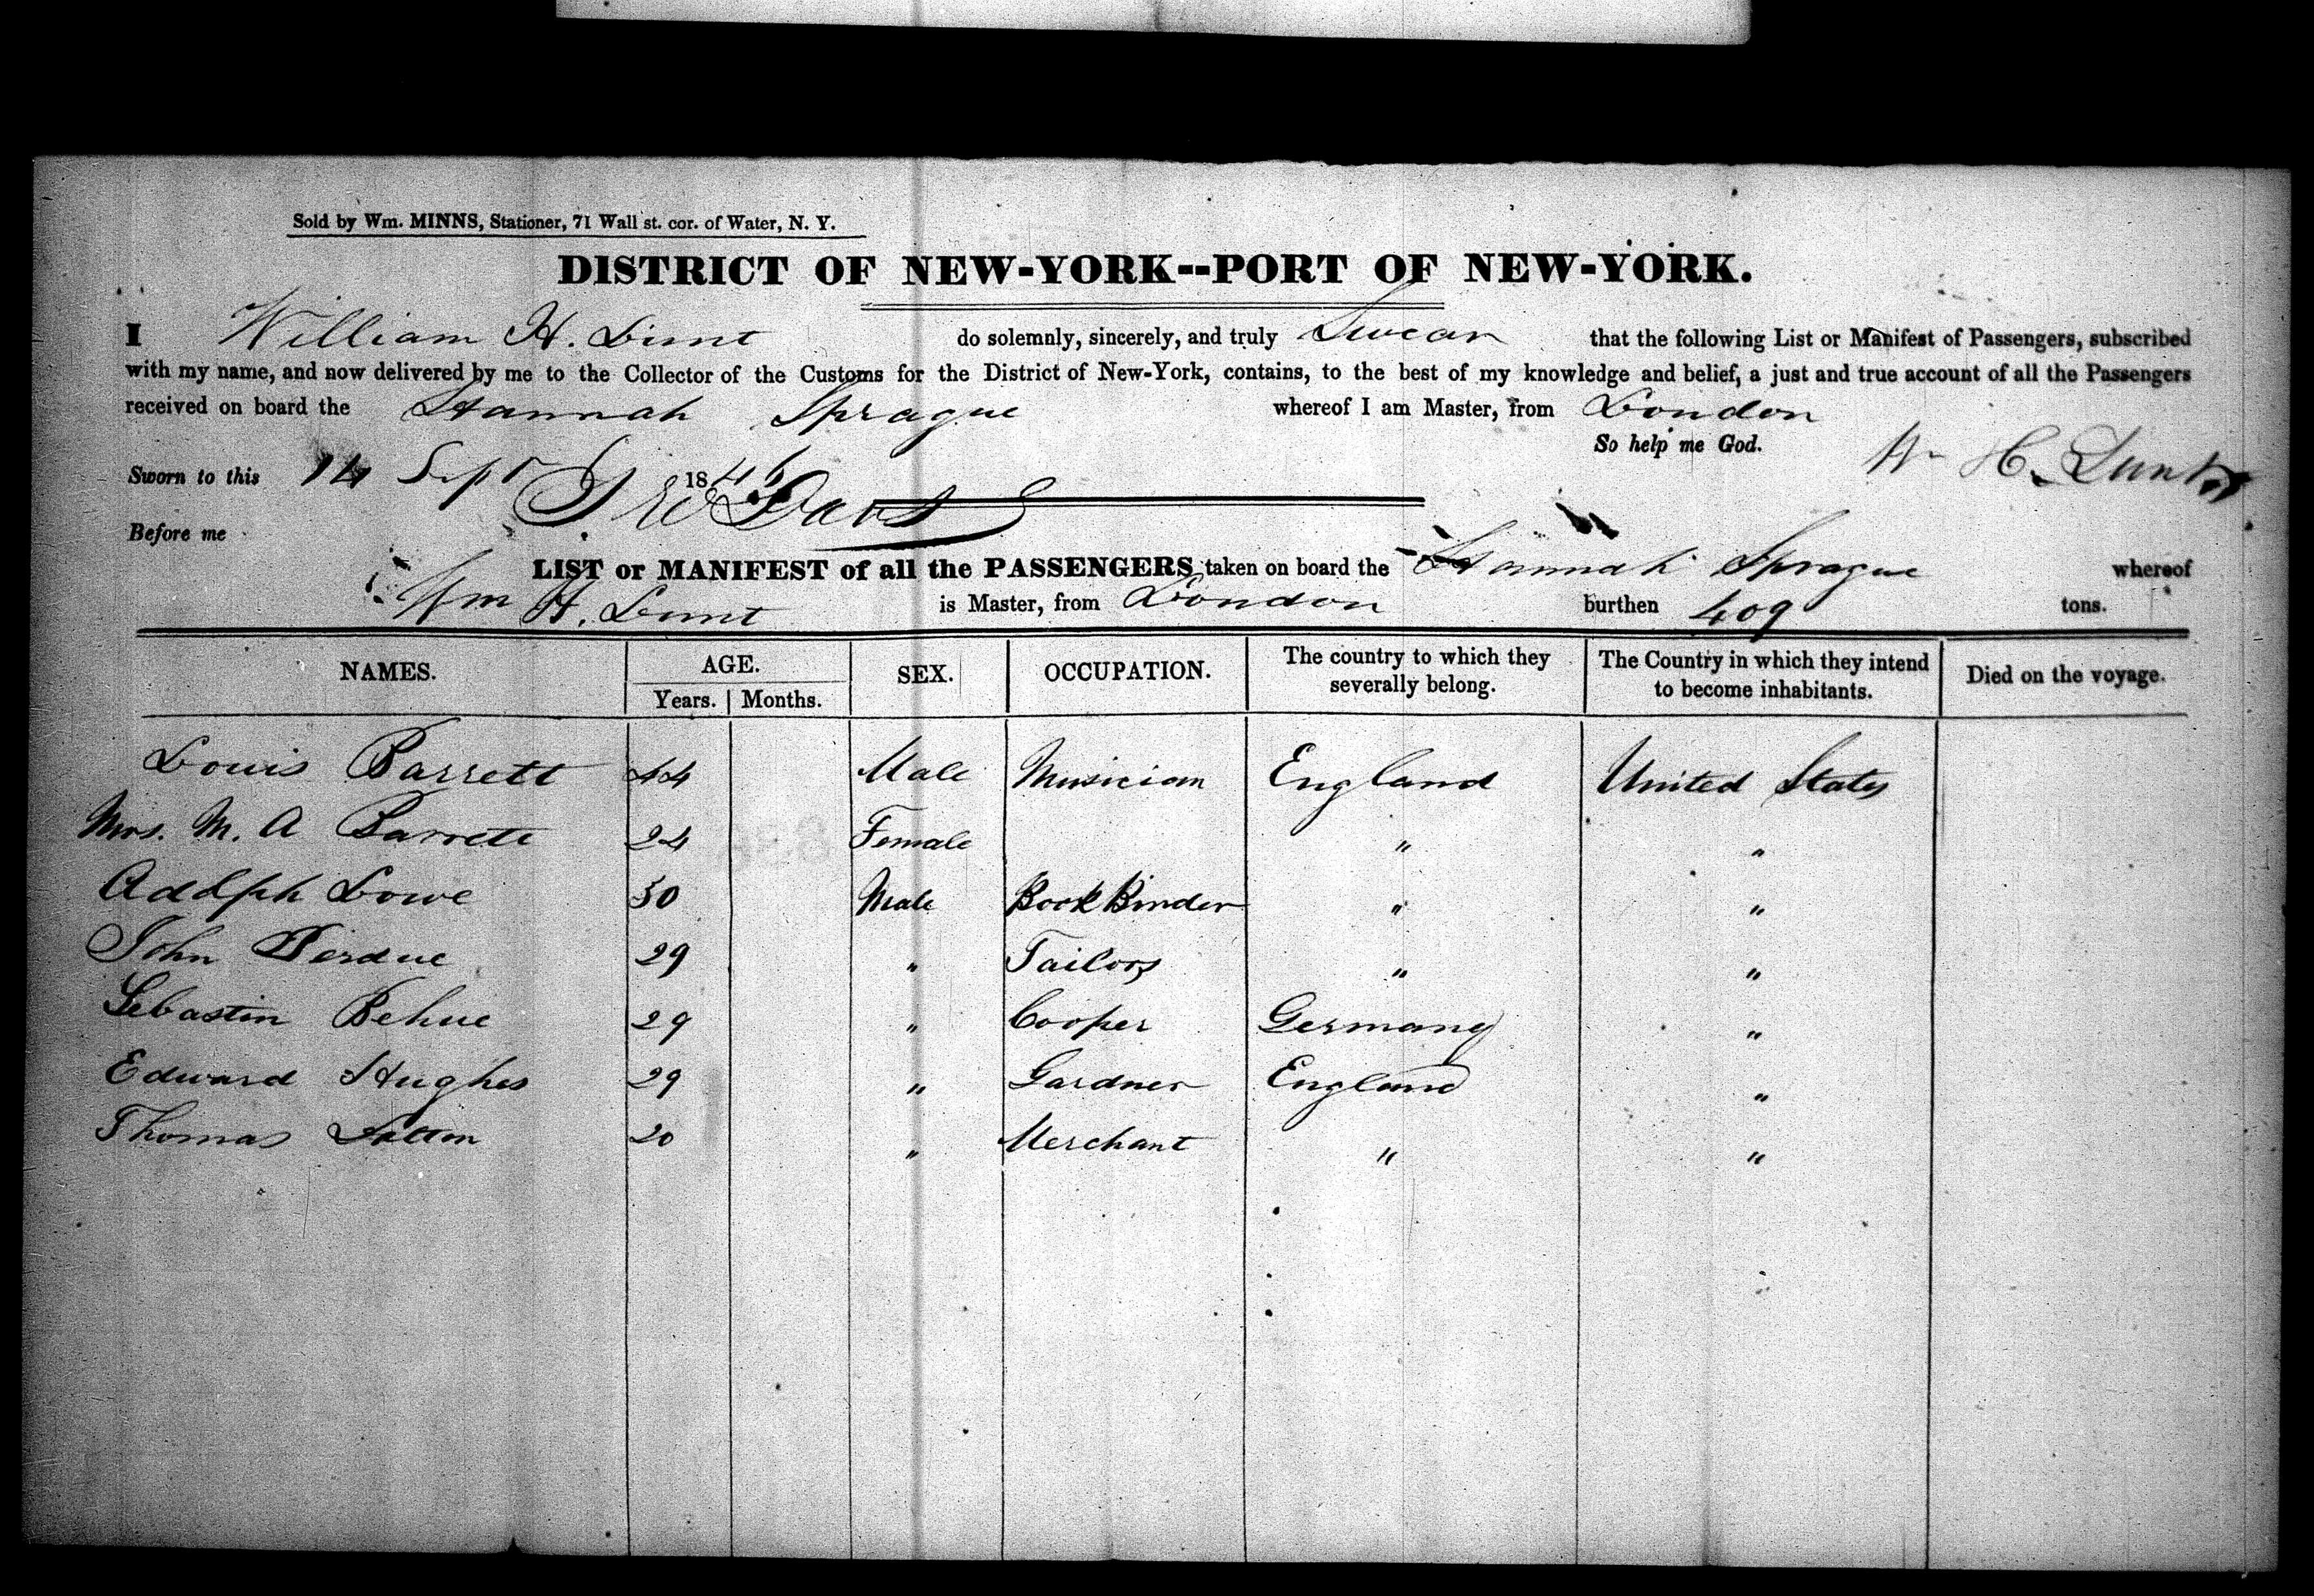 Sold by Wm. MINNS, Stationer, 71 Wall st. cor. of Water, N. Y.
DISTRICT OF NEW-YORK--PORT OF NEW-YORK.
I William H. Lunt do solemnly, sincerely, and truly Swear that the following List or Manifest of Passengers, subscribed
with my name, and now delivered by me to the Collector of the Customs for the District of New-York, contains, to the best of my knowledge and belief, a just and true account of all the Passengers
received on board the Hannah Sprague whereof I am Master, from London
So help me God. Wm H. Lunt
Sworn to this 14 Sept 1846
Before me
LIST or MANIFEST of all the PASSENGERS taken on board the Hannah Sprague whereof
Wm H. Lunt is Master, from London burthen 409 tons.
NAMES. AGE. SEX. OCCUPATION. The country to which they severally belong. The Country in which they intend to become inhabitants. Died on the voyage.
Years. Months.
Louis Barrett 44 Male Musician England United States
Mrs. M. A Barrett 24 Female " "
Adolph Lowe 30 Male Book Binder " "
John Perdue 29 " Tailors " "
Sebastin Behue 29 " Cooper Germany "
Edward Hughes 29 " Gardner England "
Thomas 20 " Merchant " "